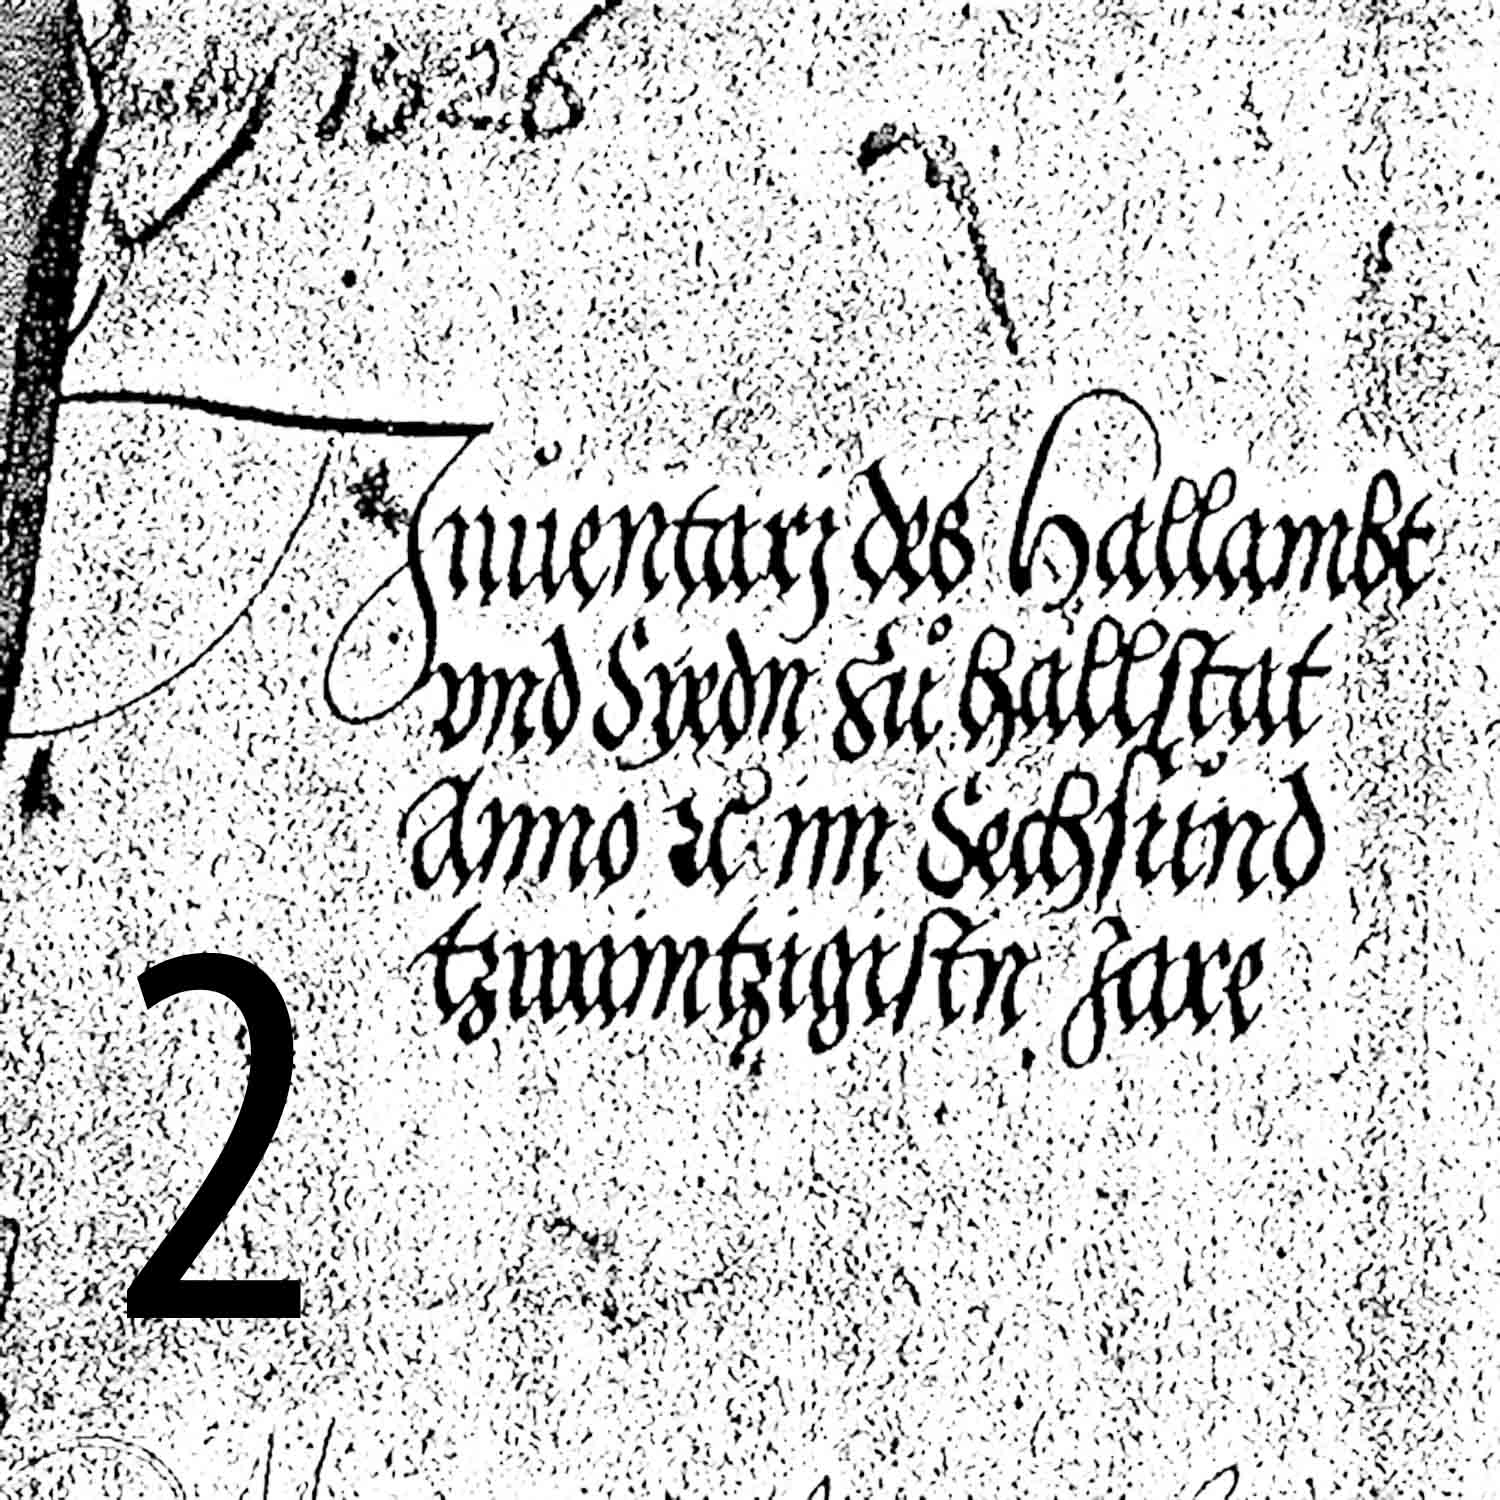 1526
Inuentarj des Hallambt
vnd Siedn zů Hallstat
Anno ꝛc im Sechsund
tzwaintzigistn Jare
2